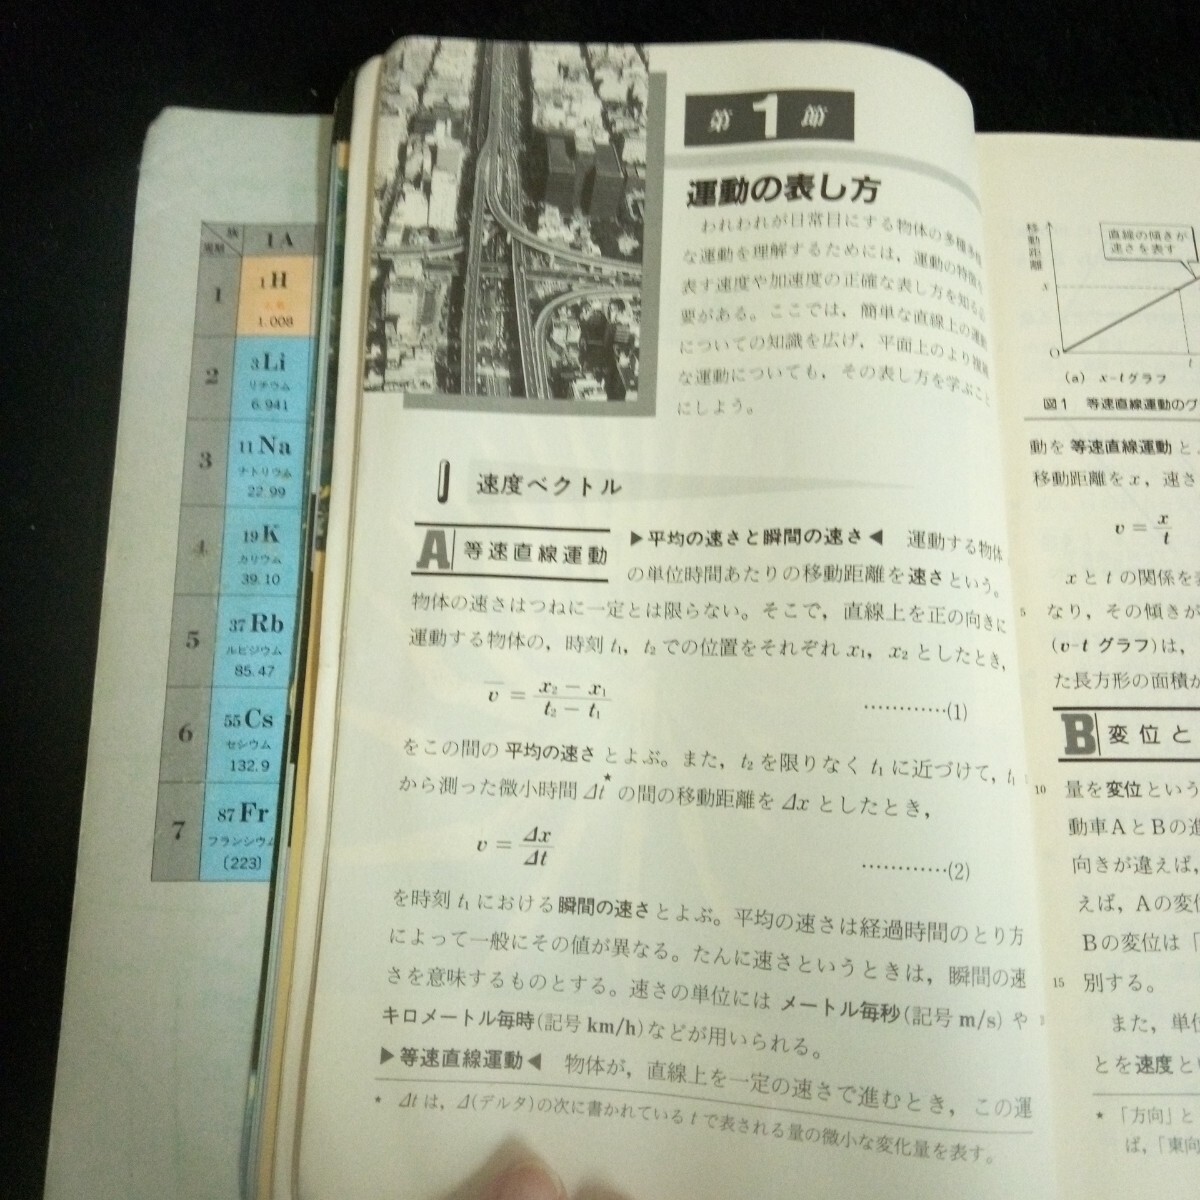 族
周期
1A
1
1H
1.008
2
3Li
リチウム
6.941
3
11Na
ナトリウム
22.99
4
19K
カリウム
39.10
5
37Rb
ルビジウム
85.47
6
55Cs
セシウム
132.9
7
87Fr
フランシウム
〔223〕
第1節
運動の表し方
われわれが日常目にする物体の多種多様
な運動を理解するためには，運動の特徴を
表す速度や加速度の正確な表し方を知る必
要がある。ここでは，簡単な直線上の運動
についての知識を広げ，平面上のより複雑
な運動についても，その表し方を学ぶこと
にしよう。
速度ベクトル
A 等速直線運動
▶平均の速さと瞬間の速さ◀ 運動する物体
の単位時間あたりの移動距離を速さという。
物体の速さはつねに一定とは限らない。そこで，直線上を正の向きに
運動する物体の，時刻 t₁，t₂での位置をそれぞれ x₁，x₂ としたとき，
v̄ = (x₂ − x₁)/(t₂ − t₁) …………(1)
をこの間の 平均の速さ とよぶ。また，t₂を限りなく t₁に近づけて，t₁
から測った微小時間 Δt* の間の移動距離を Δx としたとき，
v = Δx/Δt …………(2)
を時刻 t₁における瞬間の速さとよぶ。平均の速さは経過時間のとり方
によって一般にその値が異なる。たんに速さというときは，瞬間の速
さを意味するものとする。速さの単位には メートル毎秒(記号 m/s) や
キロメートル毎時(記号 km/h)などが用いられる。
▶等速直線運動◀ 物体が，直線上を一定の速さで進むとき，この運
★ Δtは，Δ(デルタ)の次に書かれている t で表される量の微小な変化量を表す。
移動距離
直線の傾きが
速さを表す
x
O
t
(a) x-tグラフ
図1 等速直線運動のグ
動を 等速直線運動 と
移動距離を x，速さ
v = x/t
x と t の関係を
5 なり，その傾きが
(v-t グラフ)は，
た長方形の面積が
B 変位と
10 量を変位という
動車AとBの進
向きが違えば，
えば，Aの変位
Bの変位は「
15 別する。
また，単位
とを速度とい
★ 「方向」と
ば，「東向